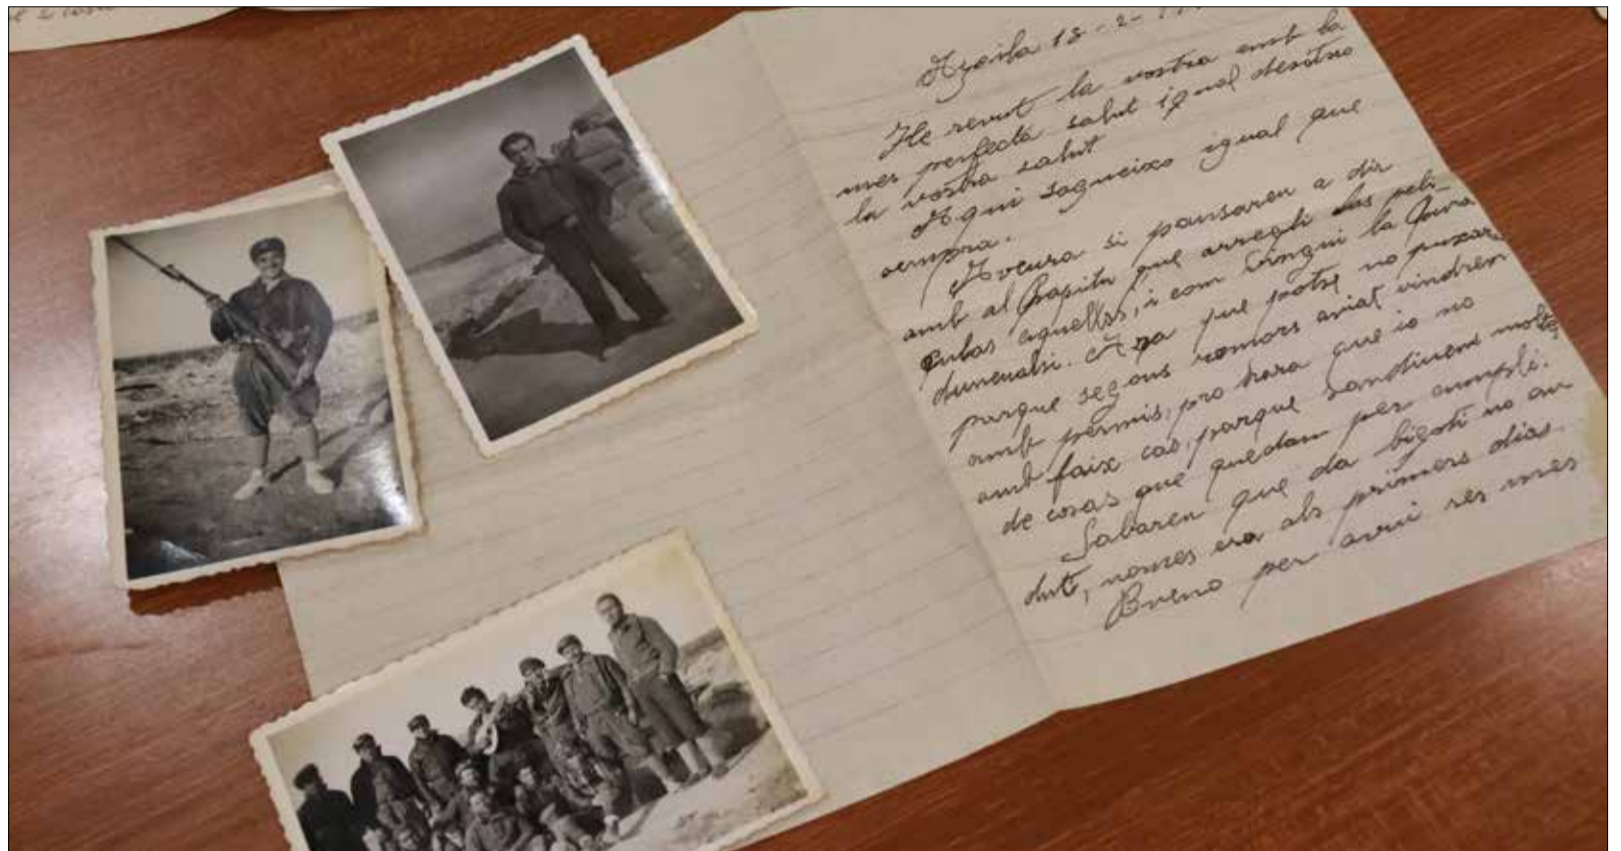 Azaila 13-2-
He revut la vostra amb la
mes perfecta salut igual desitxo
la vostra salut
Aqui sagueixo igual que
sempra.
Aveura si pansareu a dir
amb al Capità que arregli las peli-
culas aquellas, i com vingui la
duneuali. Ara que potse no puxar,
parque segons romors aviat vindrem
amb permis, pro hara que io no
amb faix cas, parque sandiuen moltes
de cosas que quedan per cumpli.
Sabaren que da bigoti no an
dut, nomes era als primers dias.
Bueno per avui res mes